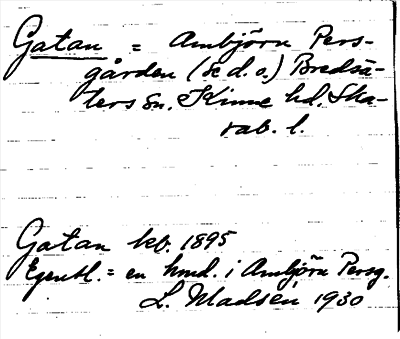 Gatan = Ambjörn Pers-
gården (se d.o.) Bredsä-
ters sn. Kinne hd. Ska-
rab. l.
Gatan kb. 1895
Egentl. = en hmd. i Ambjörn Persg.
L. Madsén 1930